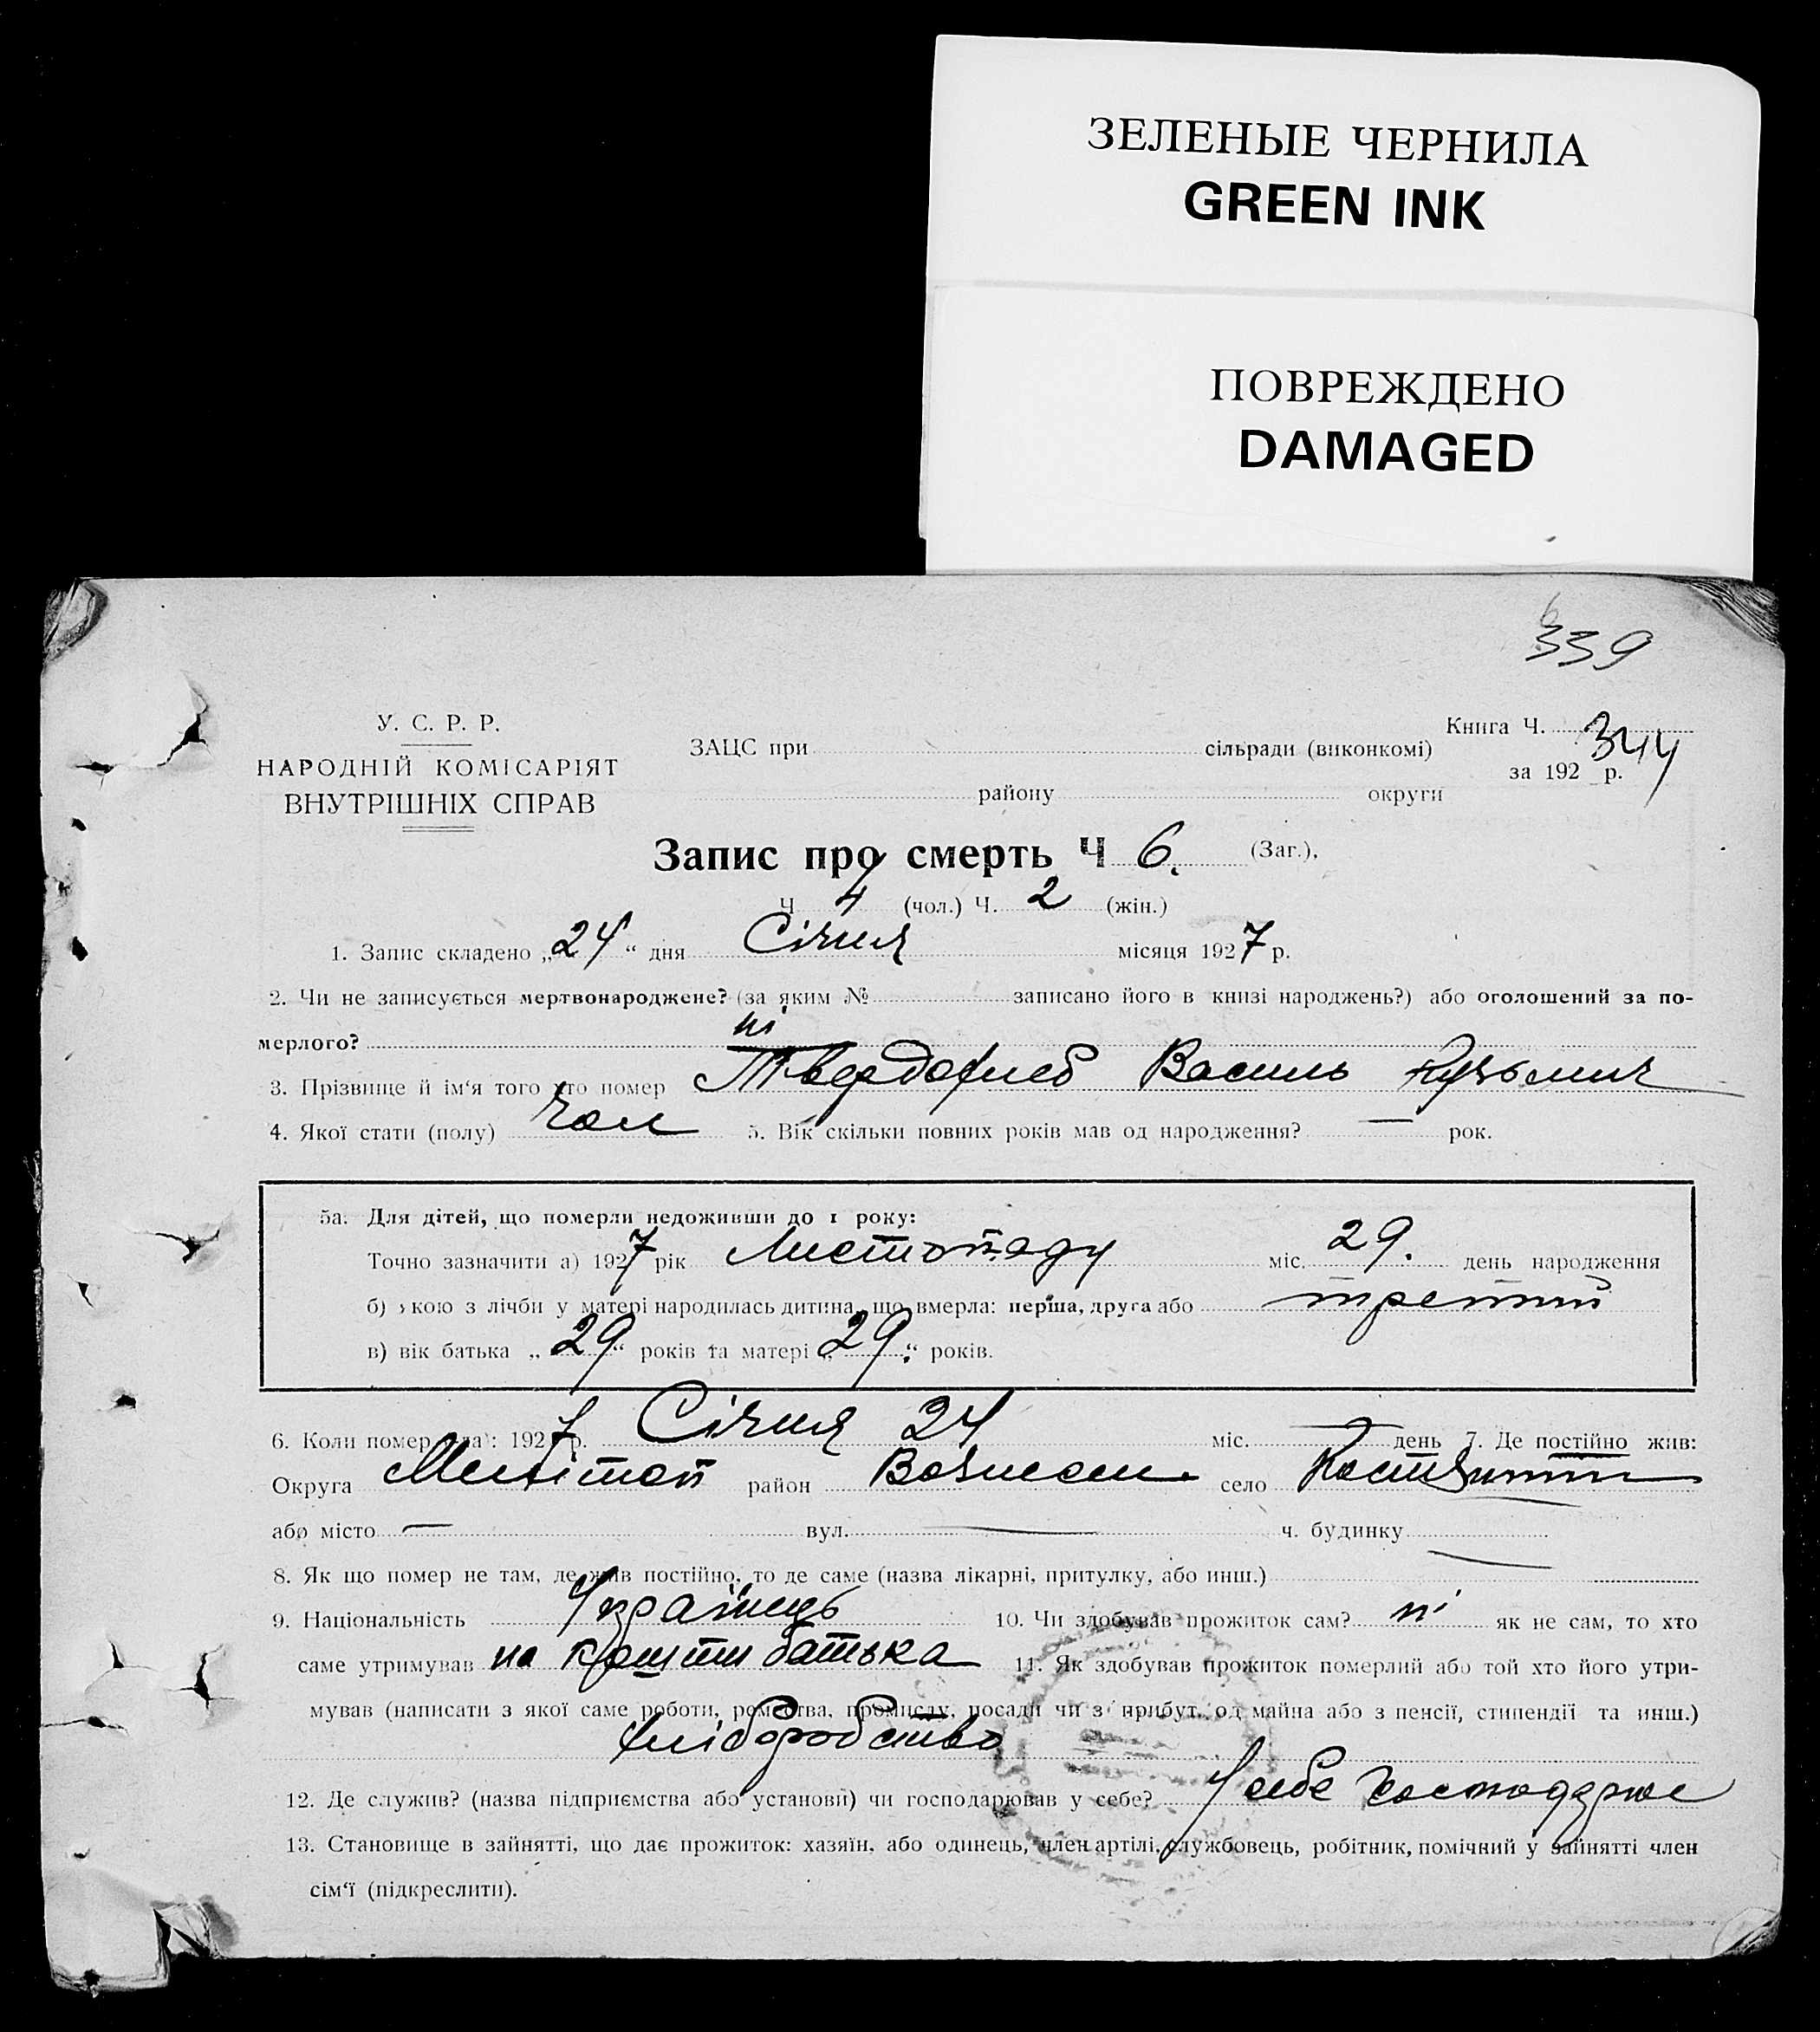 ЗЕЛЕНЫЕ ЧЕРНИЛА
GREEN INK
ПОВРЕЖДЕНО
DAMAGED
339
У. С. Р. Р.
НАРОДНІЙ КОМІСАРІЯТ
ВНУТРІШНІХ СПРАВ
Книга Ч. 344
ЗАЦС при сільради (виконкомі)
за 192 р.
району округи
Запис про смерть Ч 6. (Заг.),
Ч 4 (чол.) Ч. 2 (жін.)
1. Запис складено „24“ дня Січня місяця 1927 р.
2. Чи не записується мертвонароджене? (за яким № записано його в книзі народжень?) або оголошений за по-
мерлого? ні
3. Прізвище й ім'я того хто помер Твердохлеб Василь Кузьмич
4. Якої стати (полу) Чол 5. Вік скільки повних років мав од народження? — рок.
5а. Для дітей, що померли недоживши до 1 року:
Точно зазначити а) 1927 рік Листопаду міс. 29. день народження
б) якою з лічби у матері народилась дитина, що вмерла: перша, друга або третий
в) вік батька „29“ років та матері „29“ років.
6. Коли помер ла: 1927 р. Січня 24 міс. день 7. Де постійно жив:
Округа Мелітоп район Вознесен. село
або місто — вул. — ч. будинку —
8. Як що помер не там, де жив постійно, то де саме (назва лікарні, притулку, або инш.)
9. Національність Українець 10. Чи здобував прожиток сам? ні як не сам, то хто
саме утримував на кошти батька 11. Як здобував прожиток померлий або той хто його утри-
мував (написати з якої саме роботи, ремества, промислу, посади чи з прибут. од майна або з пенсії, стипендії та инш.)
хліборобство
12. Де служив? (назва підприємства або установи) чи господарював у себе? У себе
13. Становище в зайнятті, що дає прожиток: хазяїн, або одинець, член артілі, службовець, робітник, помічний у зайнятті член
сім'ї (підкреслити).